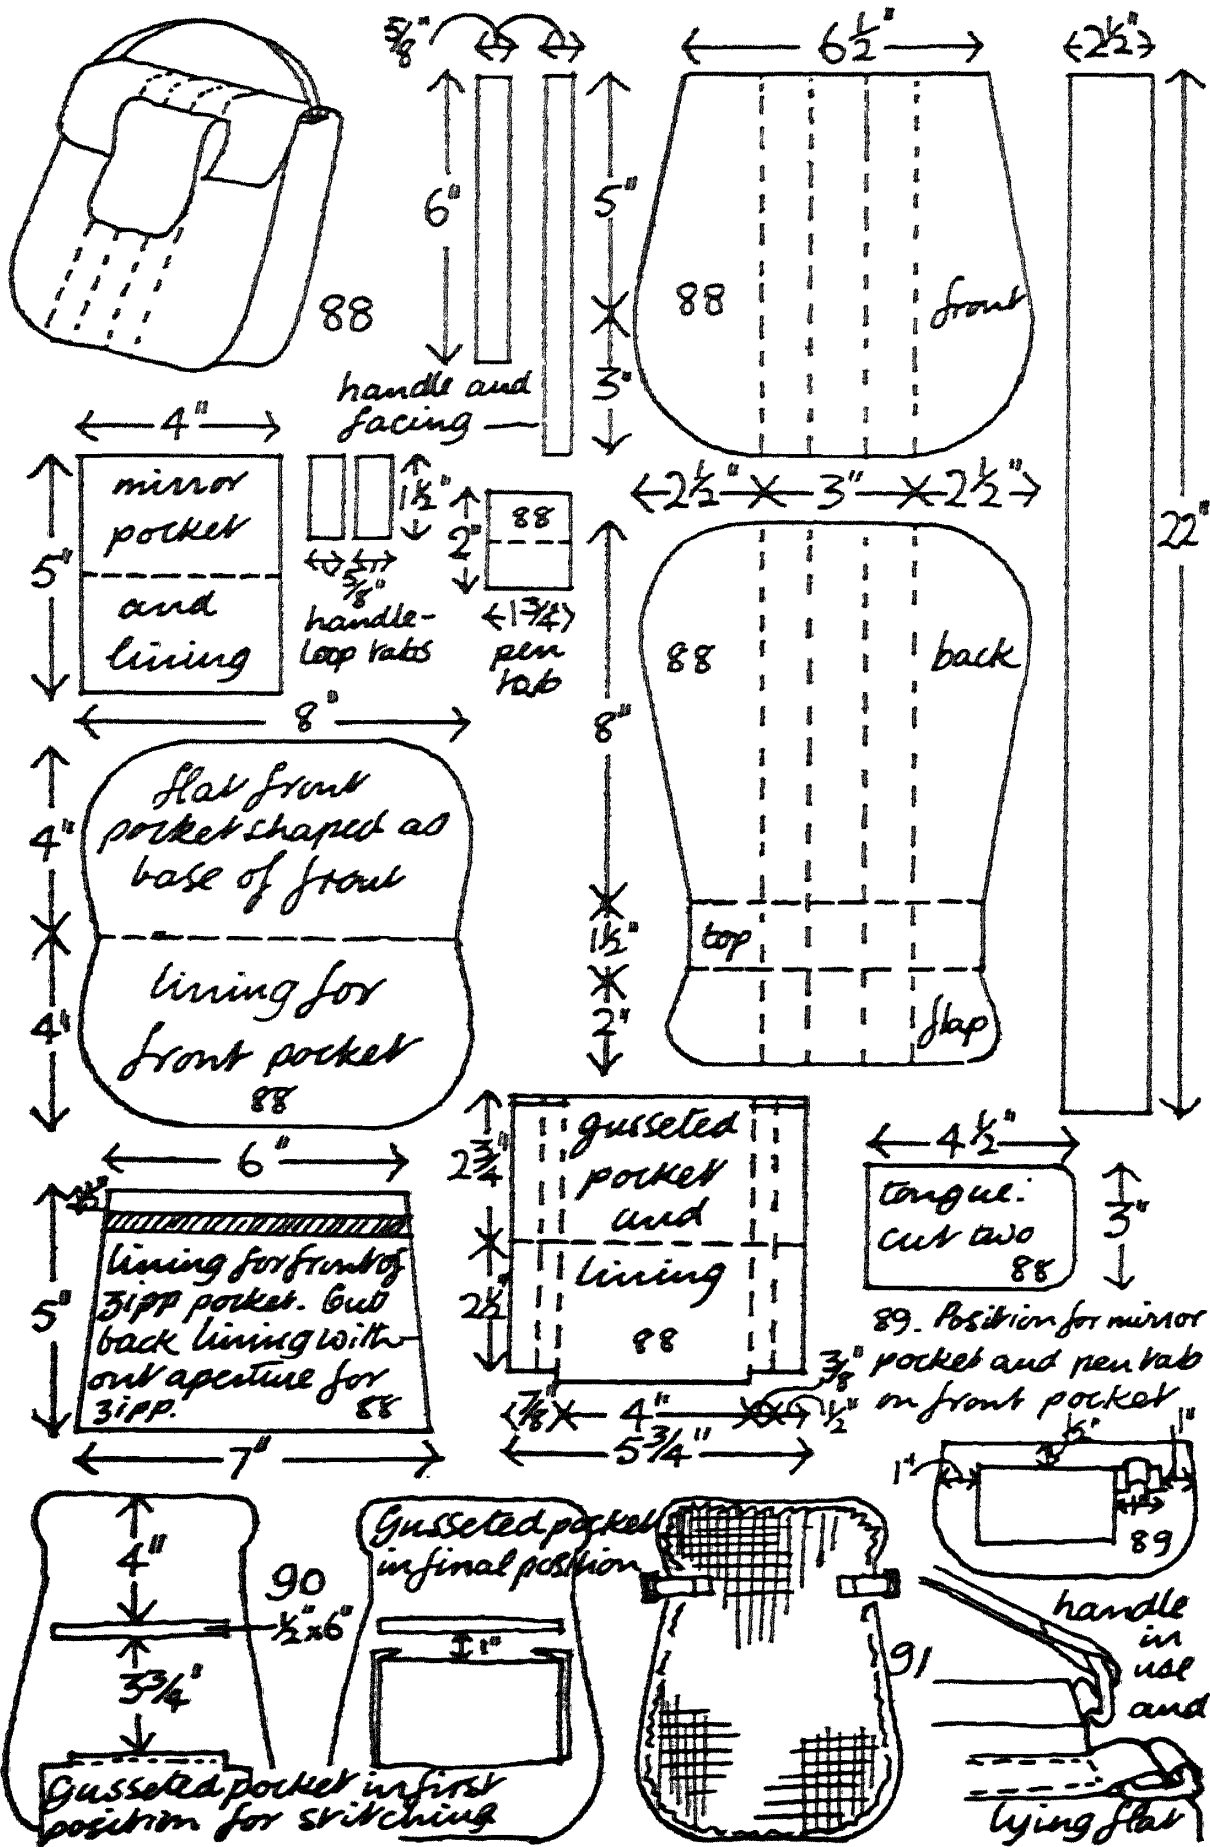 5/8"
6 1/2"
2 1/2"
6"
5"
88
88
front
3"
handle and
facing
4"
mirror
pocket
and
lining
5"
1 1/2"
5/8"
handle-
loop tabs
2"
88
1 3/4"
pen
tab
2 1/2" 3" 2 1/2"
22"
8"
88
back
top
1 1/2"
flap
2"
8"
flat front
pocket shaped as
base of front
4"
lining for
front pocket
88
4"
6"
1/2"
5"
lining for front of
zipp pocket. Cut
back lining with-
out aperture for
zipp.
88
7"
2 3/4"
2 1/2"
gusseted
pocket
and
lining
88
7/8" 4" 3/8" 1/2"
5 3/4"
4 1/2"
tongue:
cut two
88
3"
89. Position for mirror
pocket and pen tab
on front pocket
1/2"
1"
1"
1"
89
4"
90
1/2" x 6"
3 3/4"
Gusseted pocket in first
position for stitching
Gusseted pocket
in final position
1"
91
handle
in
use
and
lying flat